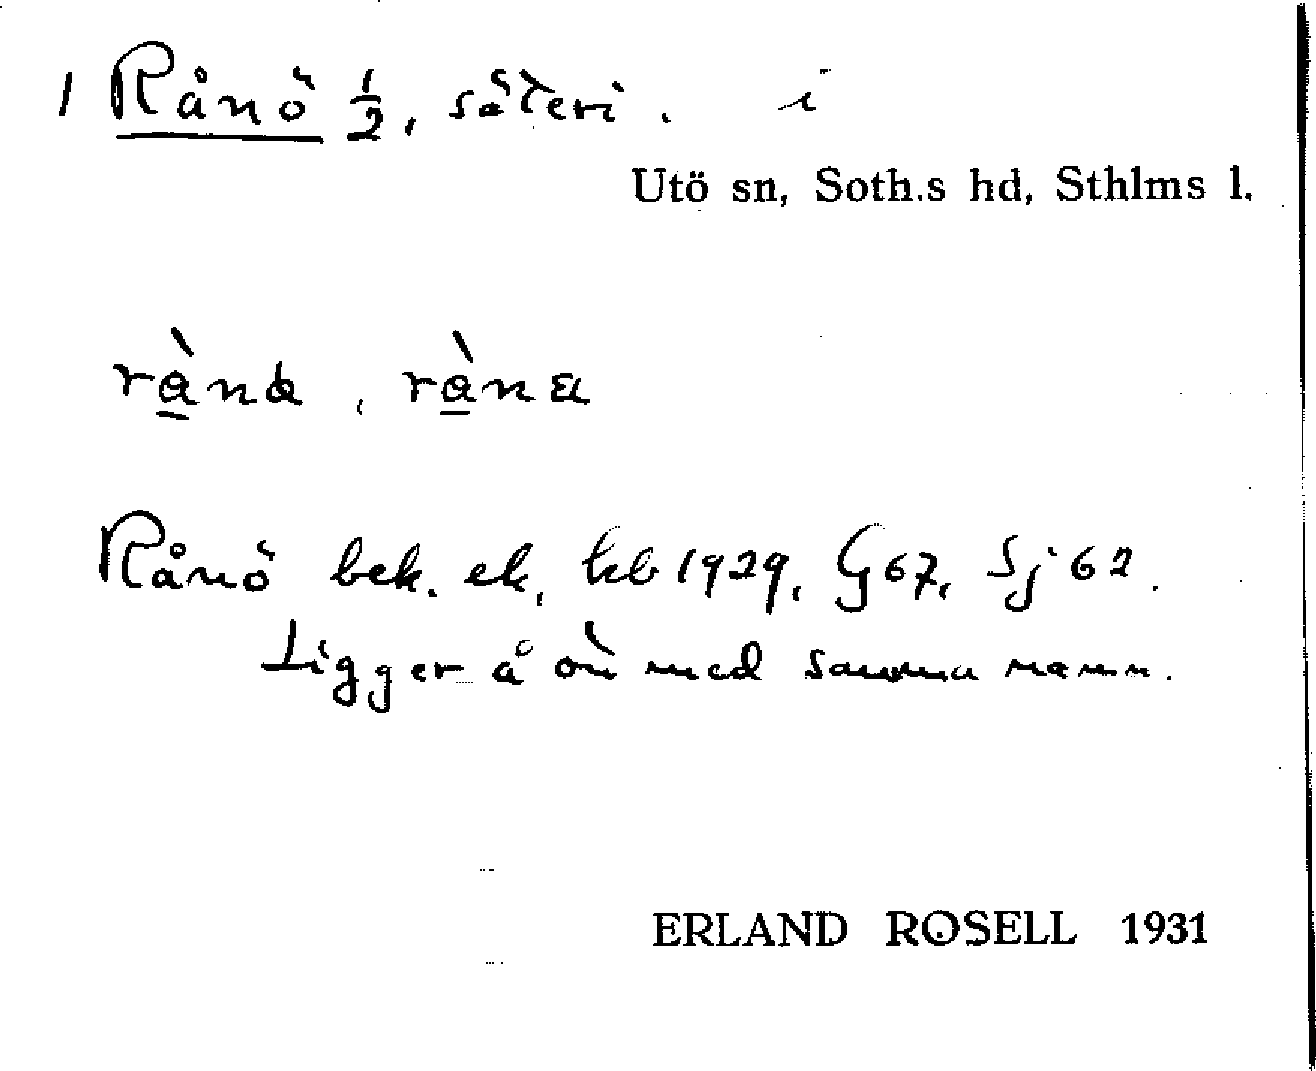 1 Rånö ½, säteri. i
Utö sn, Soth.s hd, Sthlms l.
Rånö bek. ek, kb 1929, G 67, Sj 62.
Ligger å ön med samma namn.
ERLAND ROSELL 1931